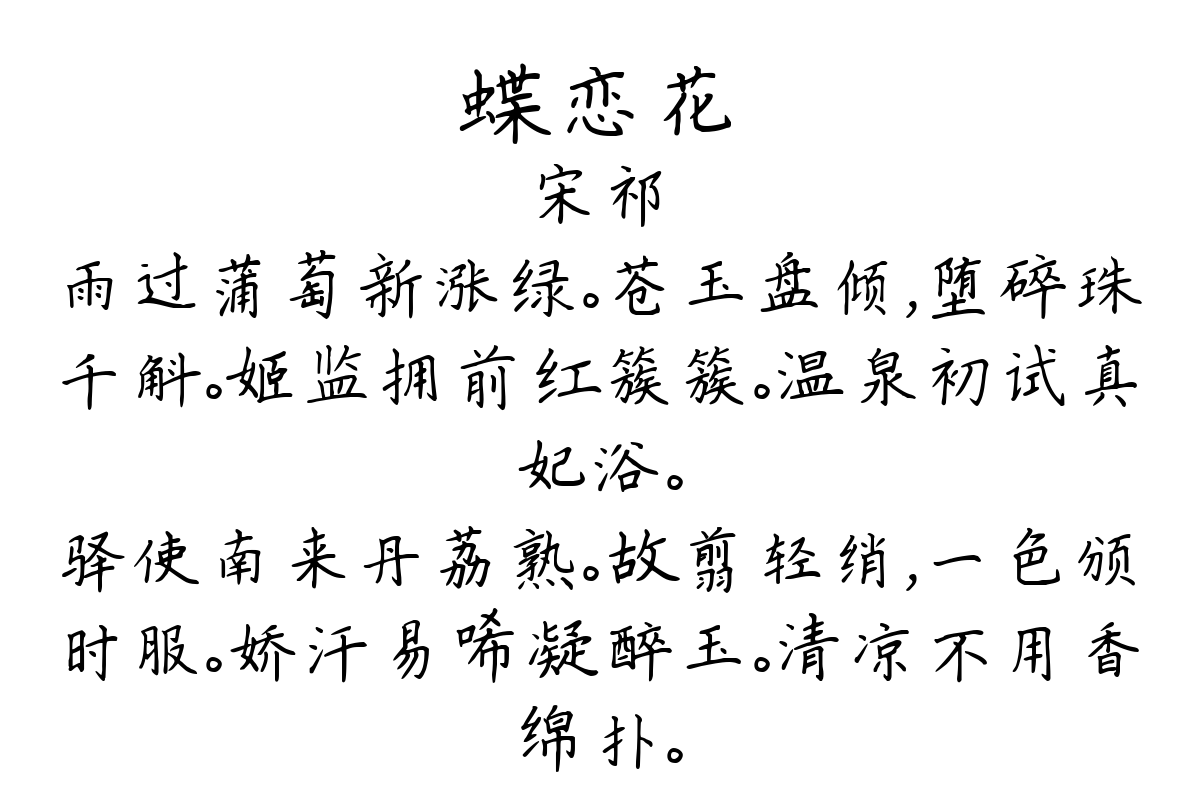 蝶恋花
宋祁
雨过蒲萄新涨绿。苍玉盘倾,堕碎珠
千斛。姬监拥前红簇簇。温泉初试真
妃浴。
驿使南来丹荔熟。故剪轻绡,一色颁
时服。娇汗易唏凝醉玉。清凉不用香
绵扑。